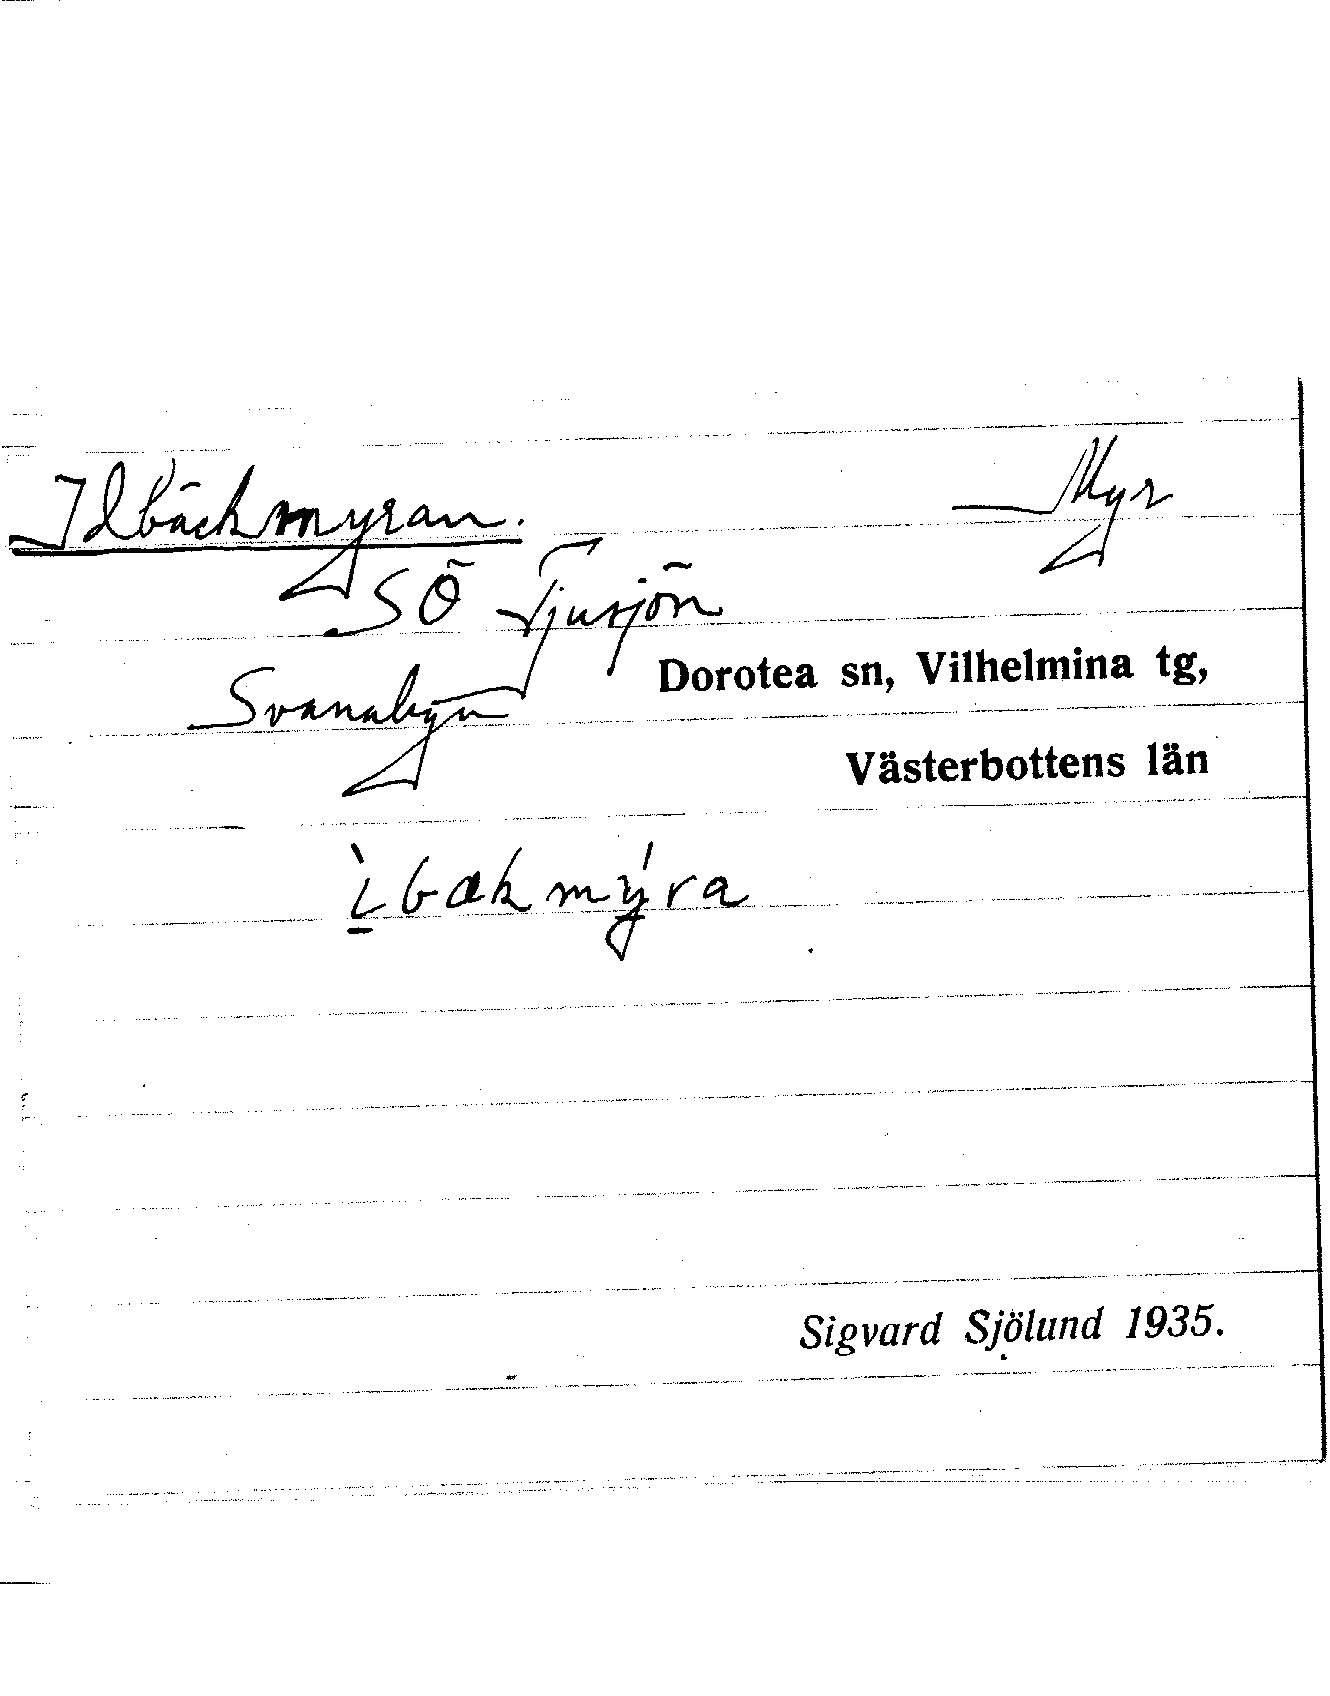 Idbäckmyran. Myr
SÖ Tjusjön
Svanabyn Dorotea sn, Vilhelmina tg,
Västerbottens län
ìbækmýra
Sigvard Sjölund 1935.